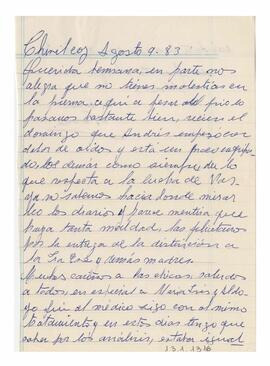 Chivilcoy Agosto 9-83
Querida hermana, en parte nos
alegra que no tienes molestias en
la pierna, aquí a pesar del frío lo
pasamos bastante bien, recien el
domingo que Andrés empezó con
dolor de oído y está un poco
los demás como siempre, de lo
que respecta a la lucha de
ya no sabemos hacia donde mirar
leo los diarios y parece mentira que
haya tanta maldad, las felicito
por la entrega de la distinción a
la Sra de y demás madres.
Muchos cariños a las chicas, saludos
a todos, en especial a Vera, Luis y Aldo
yo fui al médico sigo con el mismo
tratamiento y en estos días tengo que
saber por los análisis, estaba igual
13.1.1316